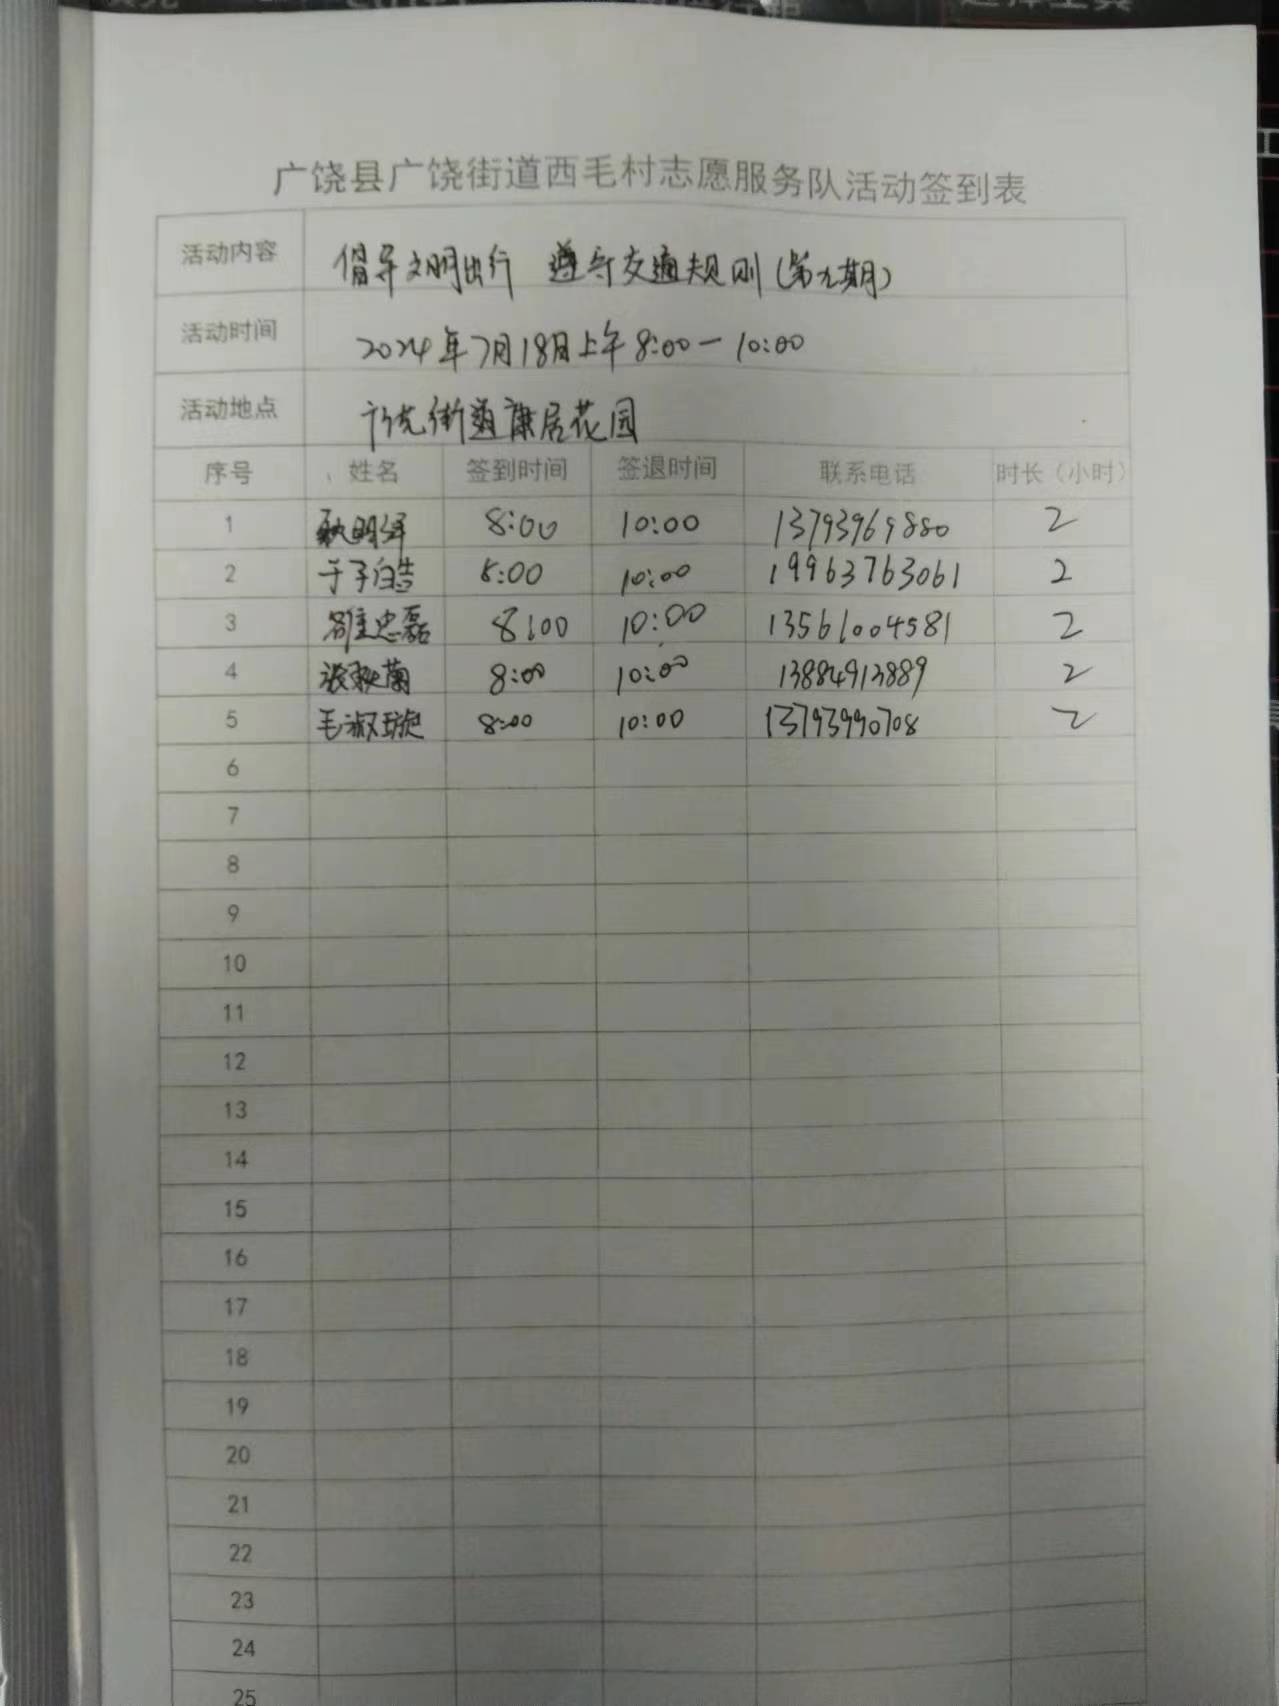 广饶县广饶街道西毛村志愿服务队活动签到表
活动内容 倡导文明出行 遵守交通规则(第九期)
活动时间 2024年7月18日上午8:00—10:00
活动地点 广饶街道康居花园
序号 姓名 签到时间 签退时间 联系电话 时长（小时）
1 8:00 10:00 13793969880 2
2 于子皓 8:00 10:00 19963763061 2
3 忠磊 8:00 10:00 13561004581 2
4 张秋菊 8:00 10:00 13884913889 2
5 毛淑璇 8:00 10:00 13793990708 2
6
7
8
9
10
11
12
13
14
15
16
17
18
19
20
21
22
23
24
25